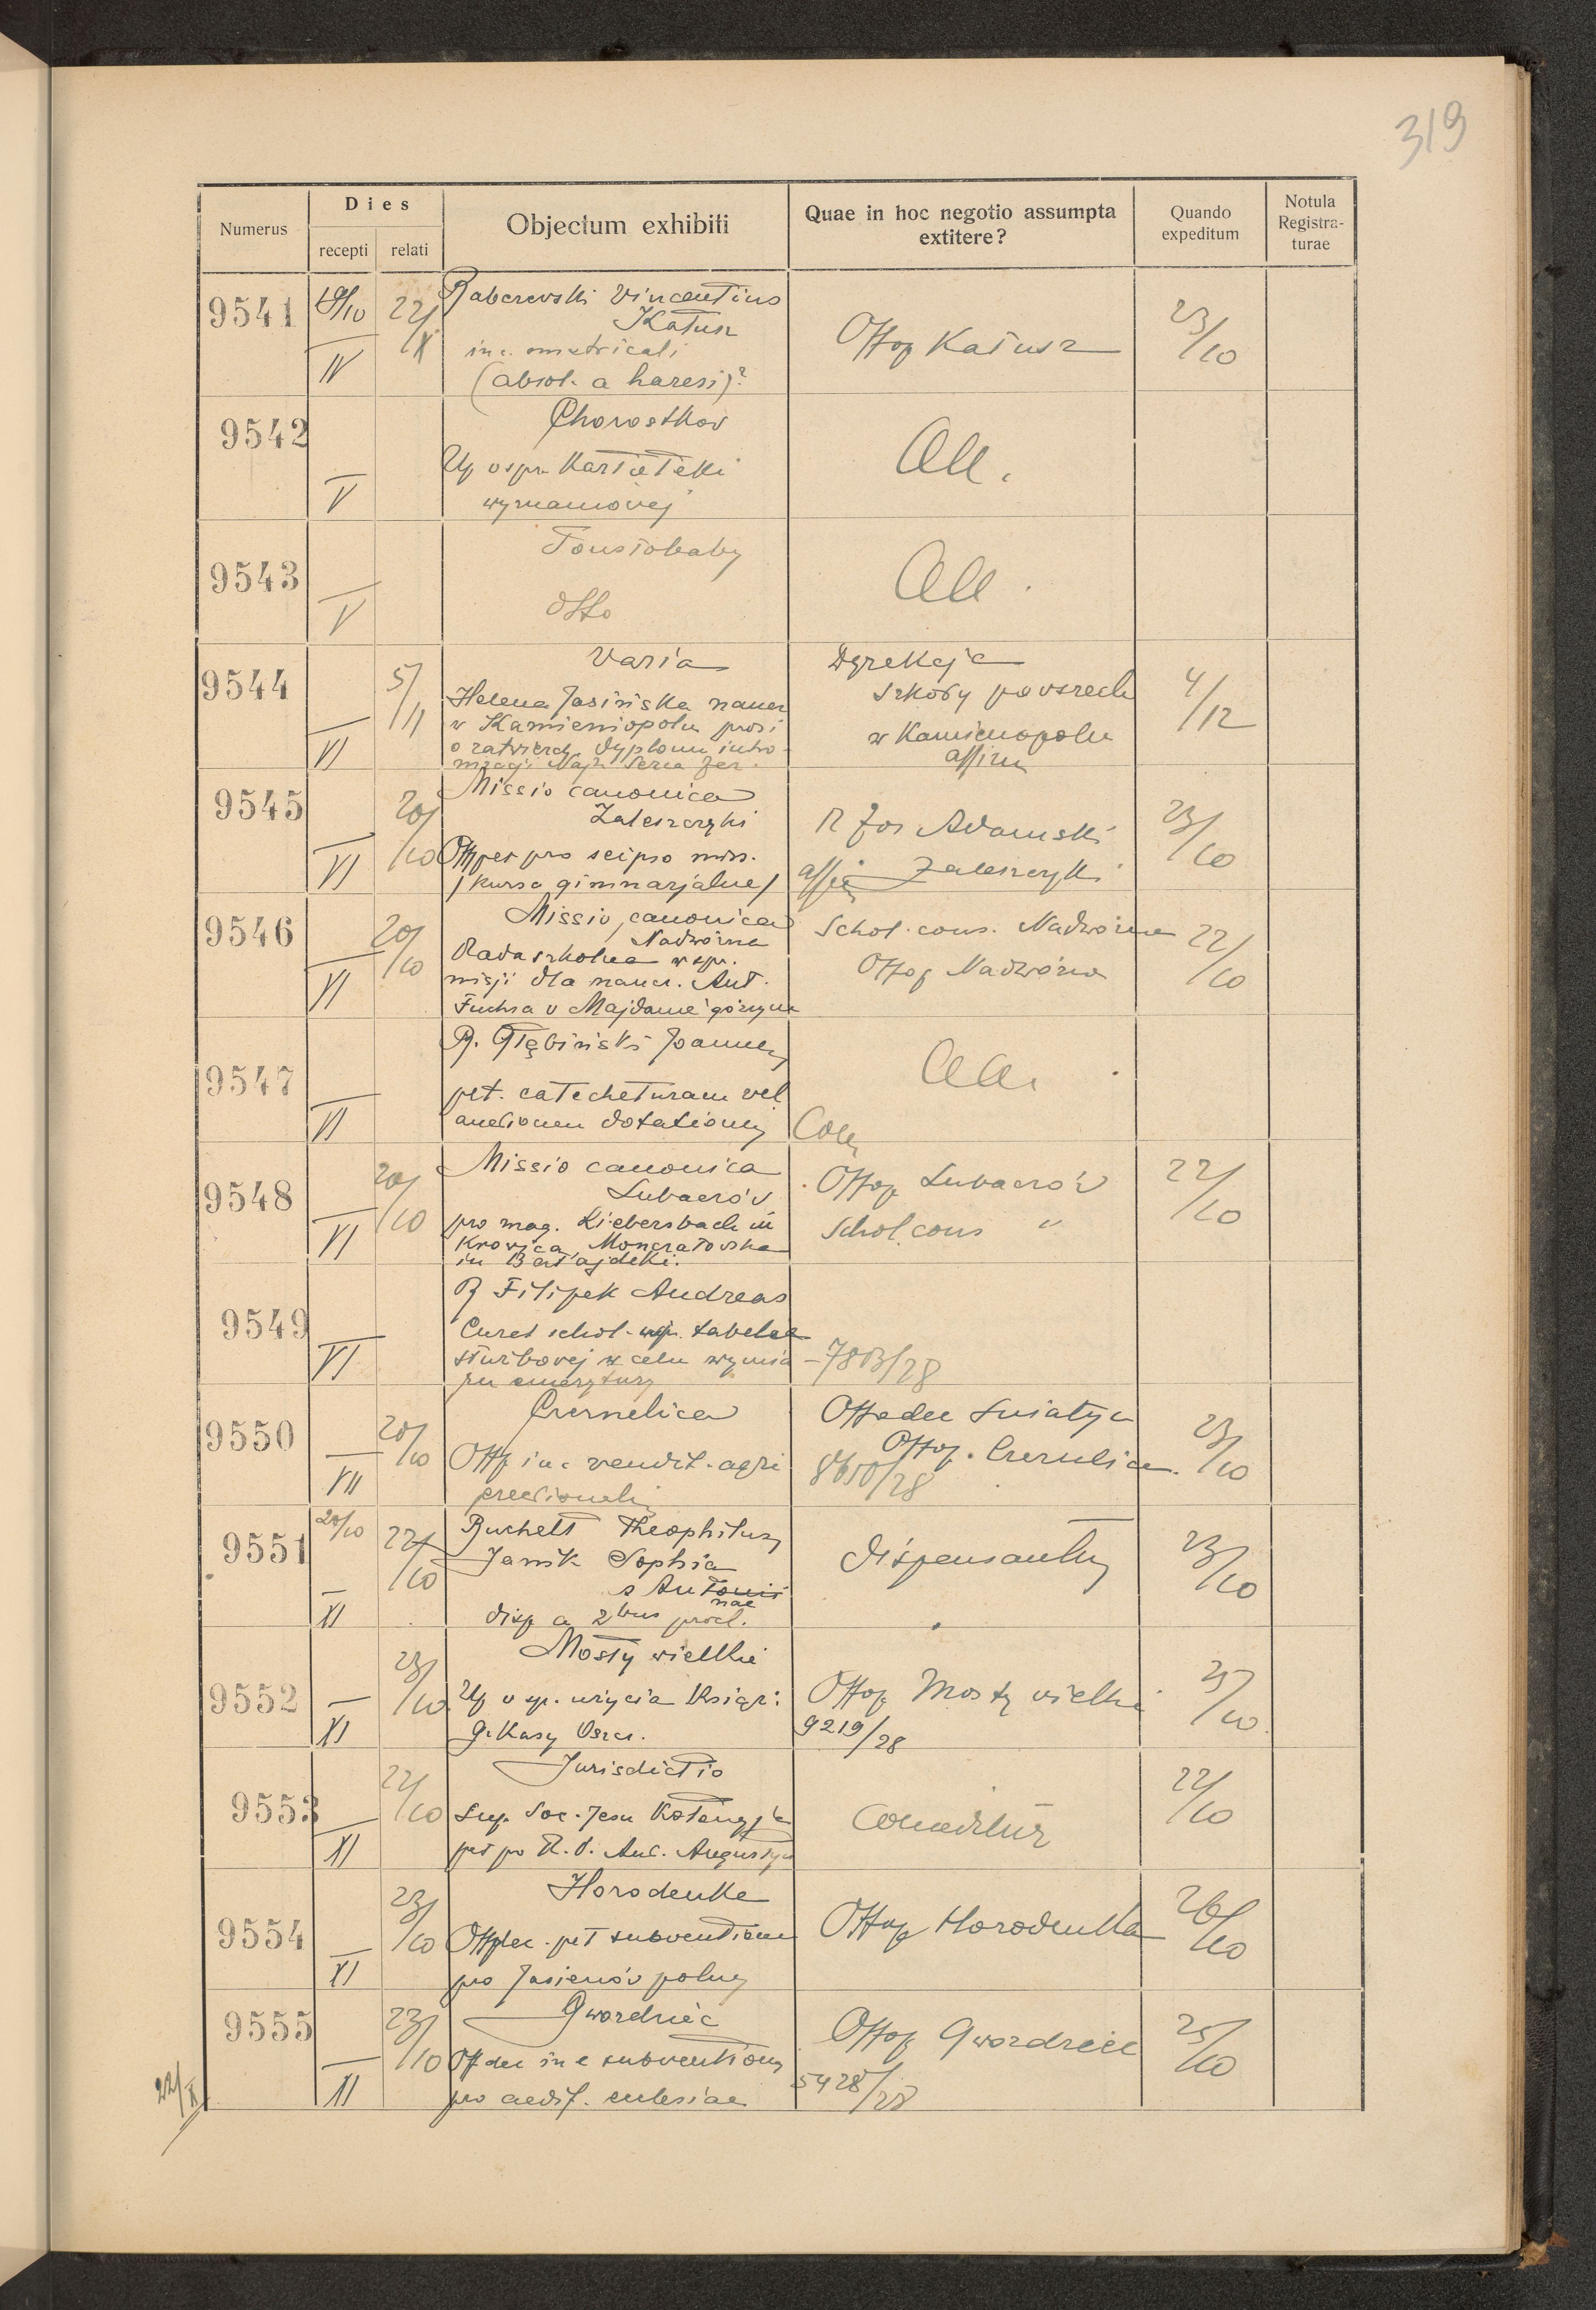 319
Numerus
Dies
recepti relati
Objectum exhibiti
Quae in hoc negotio assumpta
extitere?
Quando
expeditum
Notula
Registra-
turae
9541 19/10 22/X
IV
Vincentius
Kałusz
in c. matricali
(absol. a haresi)?
Offop Kałusz
23/10
9542
V
Chorostkov
Up v spr. Kartoteki
wyznaniovej
All.
9543
V
Toustobaby
dtto
All.
9544 5/11
VI
Varia
Helena Jasińska naucz
w Kamieniopolu prosi
o zatvierdz. dyplomu intro-
nizacji Najś. Serca Jez.
Dyrekcja
szkoły povszech
w Kamienopolu
affirm
4/12
9545 20/10
VI
Missio canonica
Zaleszczyki
Offpet pro seipso miss.
/kursa gimnazjalne/
R Jos Adamski
Zaleszczyki
23/10
9546 20/10
VI
Missio canonica
Nadwórna
Rada szkolna w spr.
misji dla naucz. Ant.
Fuchsa v Majdanie górnym
Schol. cons. Nadwórna
Offop Nadwórna
22/10
9547
VI
R. Głębiński Joannes
pet. catecheturam vel
dotationis
All.
9548 20/10
VI
Missio canonica
Lubaczóv
pro mag. Liebersbach in
Krovica, Moncratovska
in Basajdeki.
Offop Lubaczóv
Schol. cons "
22/10
9549
VI
R Filipek Andreas
Curet schol. wspr. tabelae
służbovej w celu wymia
ru emerytury
-7803/28
9550 20/10
VII
Czernelica
Offp in c vendit. agri
Offadec Sniatyn
Offop. Czernelica
8650/28
23/10
9551 20/10 22/10
XI
Ruchelt Theophilus
Janik Sophia
s Antonis
nae
disp a 2bus procl.
dispensantur
23/10
9552 23/10
XI
Mosty wielkie
Up v sp. użycia Książ:
g. Kasy Oszcz.
Offop Mosty vielkie
9219/28
25/10
9553 22/10
XI
Jurisdictio
Sup. Soc. Jesu
pet po R. D. Aug. Augustyn
Conceditur
22/10
9554 23/10
XI
Horodenka
Offdec. pet subventionem
pro Jasienóv polny
Offop Horodenka
26/10
9555 23/10
XI
Gwozdziec
Offdec in c subventionis
pro aedif. eclesiae
Offop Gwozdziec
5428/28
25/10
22/X